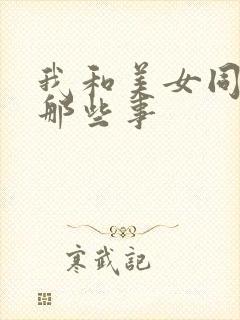 我和美女同
那些事
寒武記